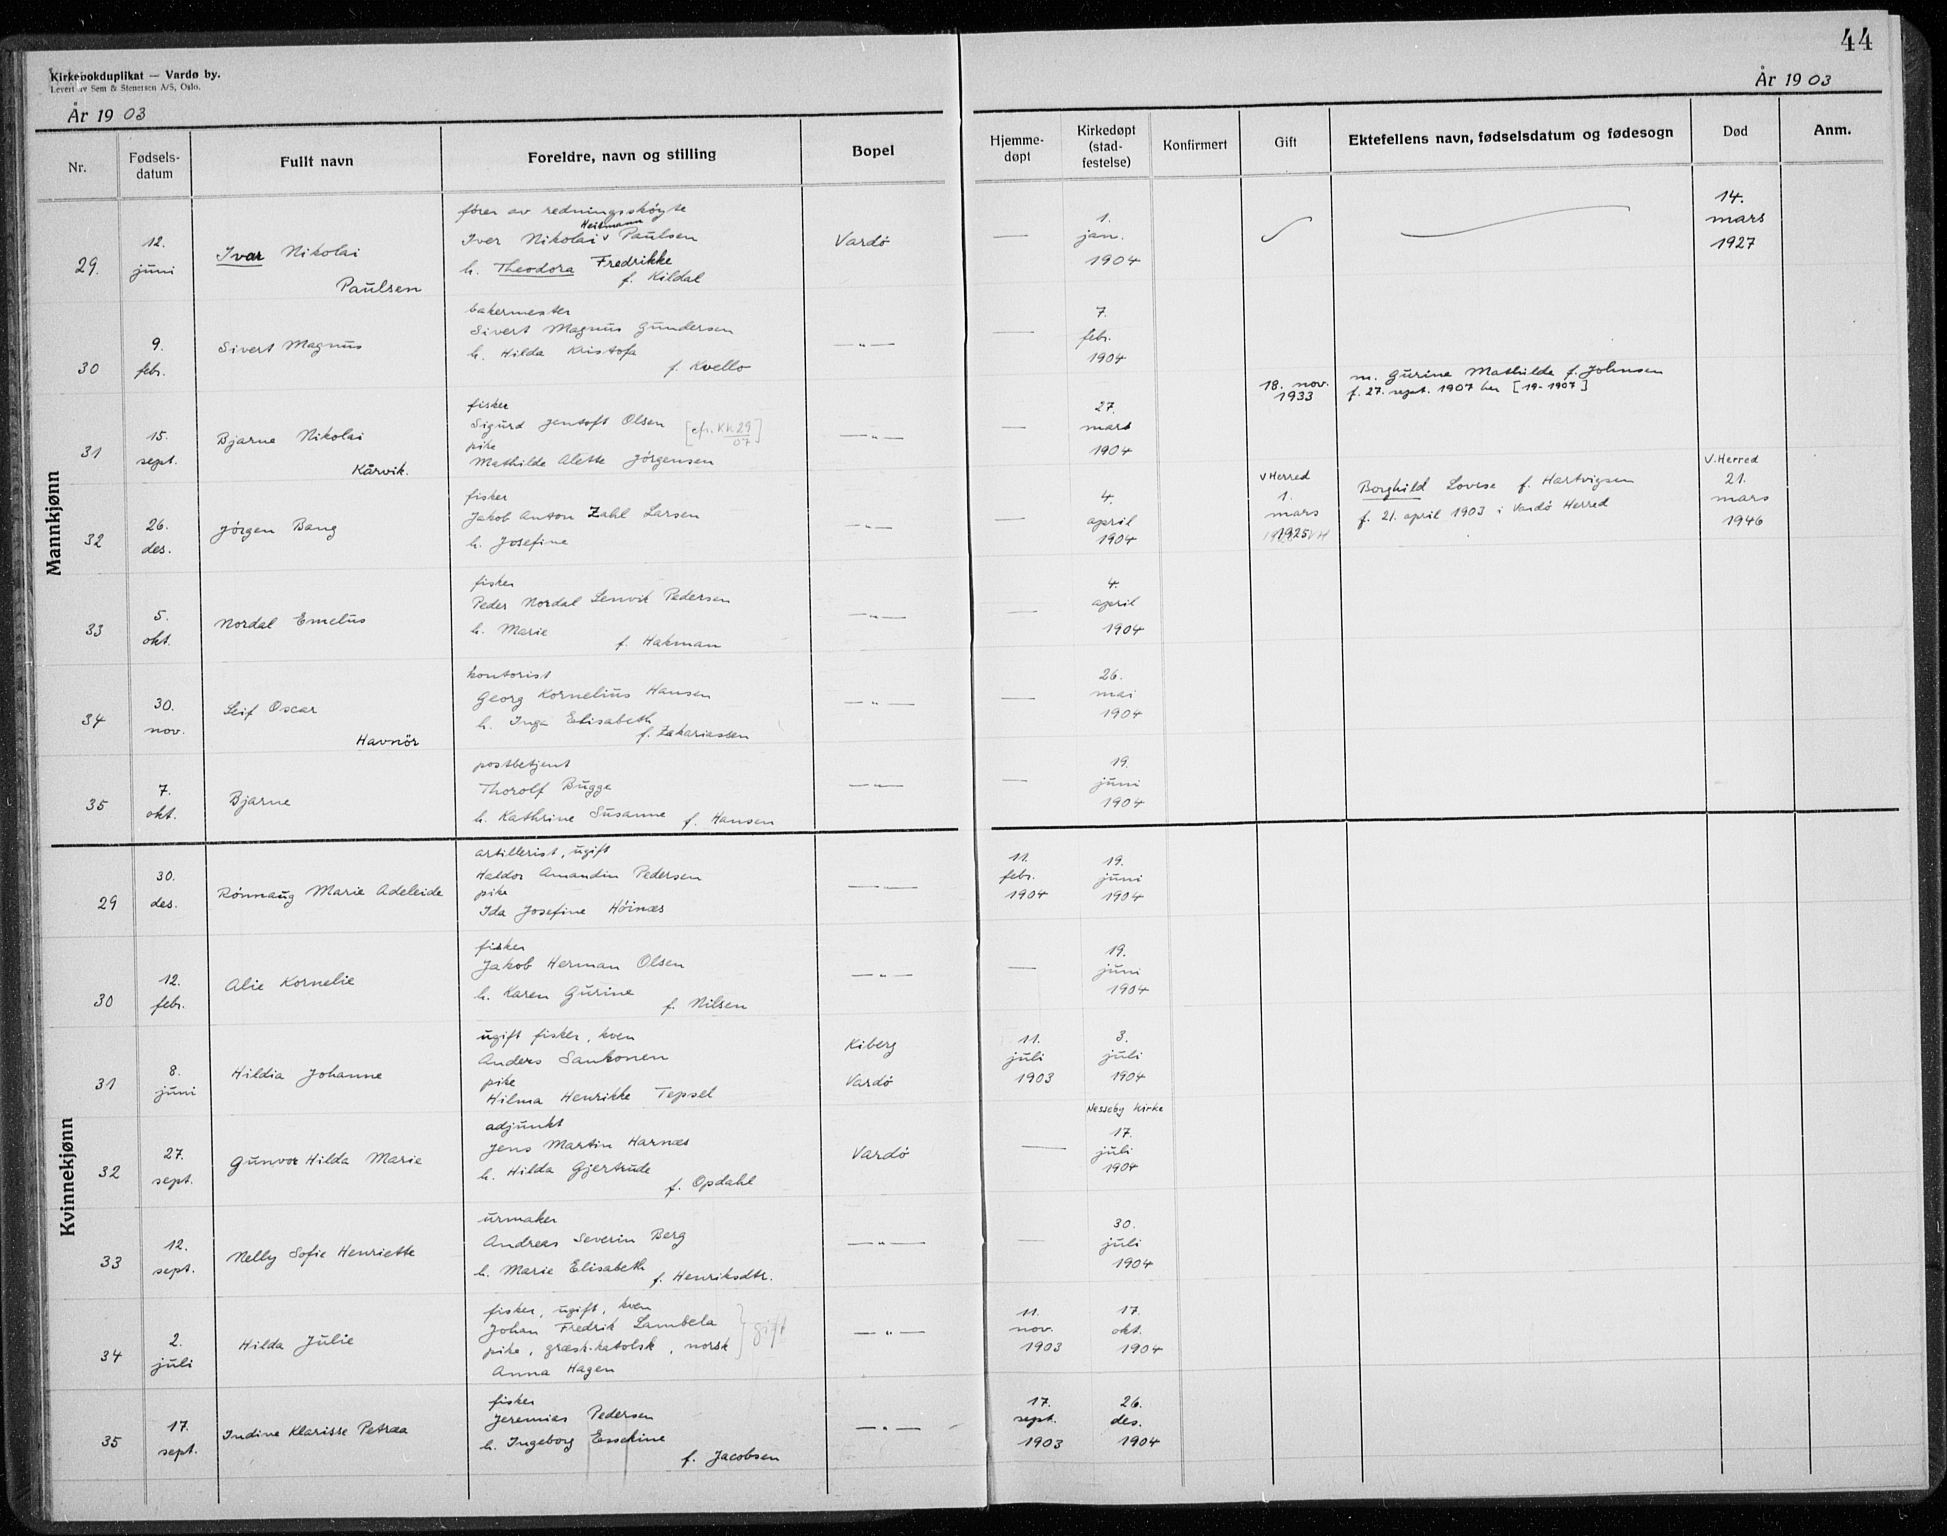 44
Kirkebokduplikat — Vardø by.
Levert av Sem & Stenersen A/S, Oslo.
År 1903
År 1903
Nr.
Fødsels-
datum
Fullt navn
Foreldre, navn og stilling
Bopel
Hjemme-
døpt
Kirkedøpt
(stad-
festelse)
Konfirmert
Gift
Ektefellens navn, fødselsdatum og fødesogn
Død
Anm.
Mannkjønn
29.
12.
juni
Ivar Nikolai
Paulsen
fører av redningsskøyte
Heitmann
Iver Nikolai v Paulsen
h. Theodora Fredrikke
f. Kildal
Vardö
—
1.
jan.
1904
14.
mars
1927
30
9.
febr.
Sivert Magnus
bakermester
Sivert Magnus Gundersen
h. Hilda Kristofa
f. Kvello
— „ —
—
7.
febr.
1904
31
15.
sept.
Bjarne Nikolai
Kårvik.
fisker
Sigurd Jentoft Olsen [cfr. KK 29/07]
pike
Mathilde Alette Jörgensen
— „ —
27.
mars
1904
18. nov.
1933
m. Gurine Mathilde f. Johnsen
f. 27. sept. 1907 her [19-1907]
32
26.
des.
Jørgen Bang
fisker
Jakob Anton Zahl Larsen
h. Josefine
— „ —
—
4.
april
1904
V Herred
1.
mars
1925
Borghild Lovise f. Hartvigsen
f. 21. april 1903 i Vardö Herred
V. Herred
21.
mars
1946
33
5.
okt.
Nordal Emelus
fisker
Peder Nordal Lenvik Pedersen
h. Marie
f. Hakman
— „ —
—
4.
april
1904
34
30.
nov.
Leif Oscar
Havnör
kontorist
Georg Kornelius Hansen
h. Inga Elisabeth
f. Zakariassen
— „ —
—
26.
mai
1904
35
7.
okt.
Bjarne
postbetjent
Thorolf Bugge
h. Kathrine Susanne f. Hansen
— „ —
—
19.
juni
1904
Kvinnekjønn
29
30.
des.
Rønnaug Marie Adeleide
artillerist, ugift
Haldor Amandin Pedersen
pike
Ida Josefine Höinæs
— „ —
11.
febr.
1904
19.
juni
1904
30
12.
febr.
Alie Kornelie
fisker
Jakob Herman Olsen
h. Karen Gurine
f. Nilsen
— „ —
—
19.
juni
1904
31
8.
juni
Hildia Johanne
ugift fisker, kven
Anders Sankonen
pike
Hilma Henrikke Tepsel
Kiberg
Vardö
11.
juli
1903
3.
juli
1904
32
27.
sept.
Gunvor Hilda Marie
adjunkt
Jens Martin Harnæs
h. Hilda Gjertrude
f. Opdahl
Vardö
—
Nesseby kirke
17.
juli
1904
33
12.
sept.
Nelly Sofie Henriette
urmaker
Andreas Severin Berg
h. Marie Elisabeth
f. Henriksdtr.
— „ —
—
30.
juli
1904
34
2.
juli
Hilda Julie
fisker, ugift, kven
Johan Fredrik Lambela
pike, græsk-katolsk, norsk
Anna Hagen
gift
— „ —
11.
nov.
1903
17.
okt.
1904
35
17.
sept.
Indine Klarisse Petræa
fisker
Jeremias Pedersen
h. Ingeborg Essekine
f. Jacobsen
— „ —
17.
sept.
1903
26.
des.
1904